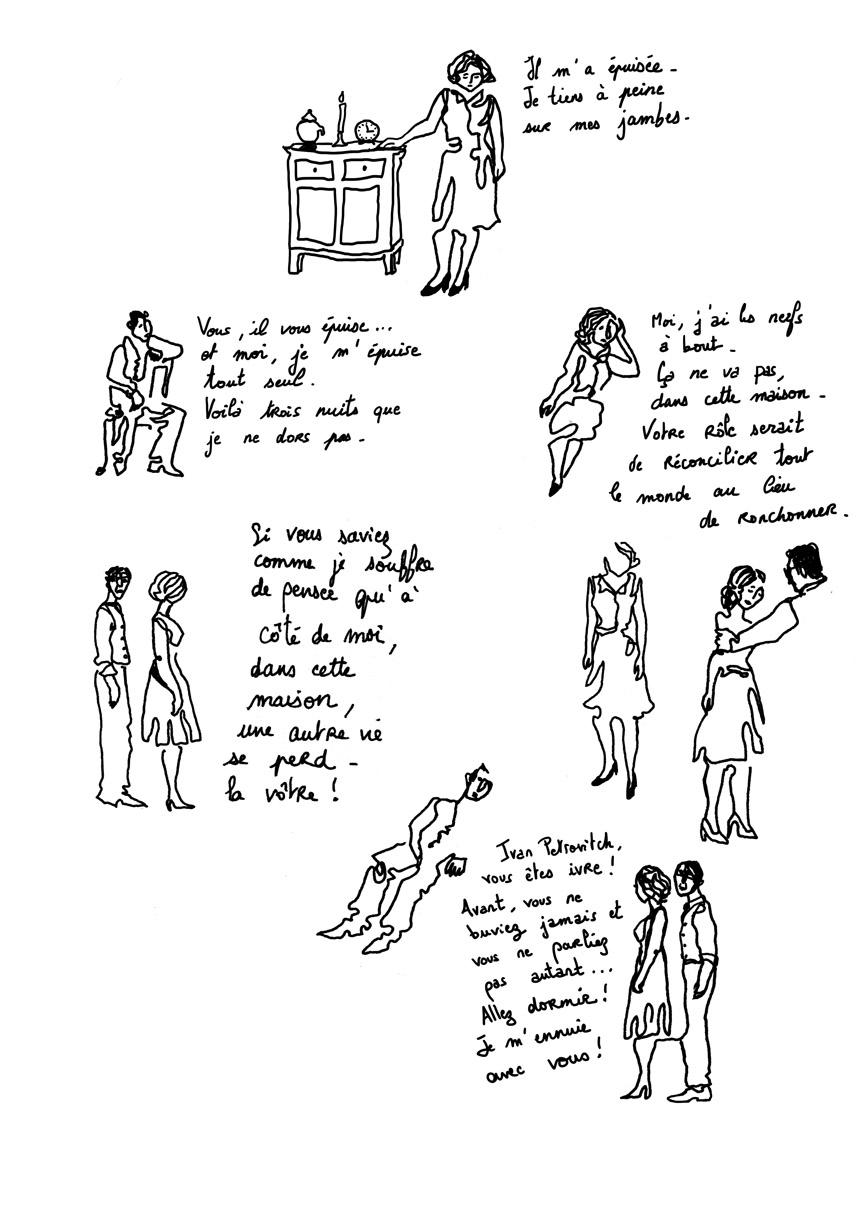 Il m'a épuisée_
Je tiens à peine
sur mes jambes_
Vous, il vous épuise...
et moi, je m'épuise
tout seul.
Voilà trois nuits que
je ne dors pas_
Moi, j'ai les nerfs
à bout_
Ça ne va pas,
dans cette maison_
Votre rôle serait
de réconcilier tout
le monde au lieu
de ronchonner.
Si vous saviez
comme je souffre
de penser qu'à
côté de moi,
dans cette
maison,
une autre vie
se perd_
la vôtre !
Ivan Petrovitch,
vous êtes ivre !
Avant, vous ne
buviez jamais et
vous ne parliez
pas autant...
Allez dormir !
Je m'ennuie
avec vous !